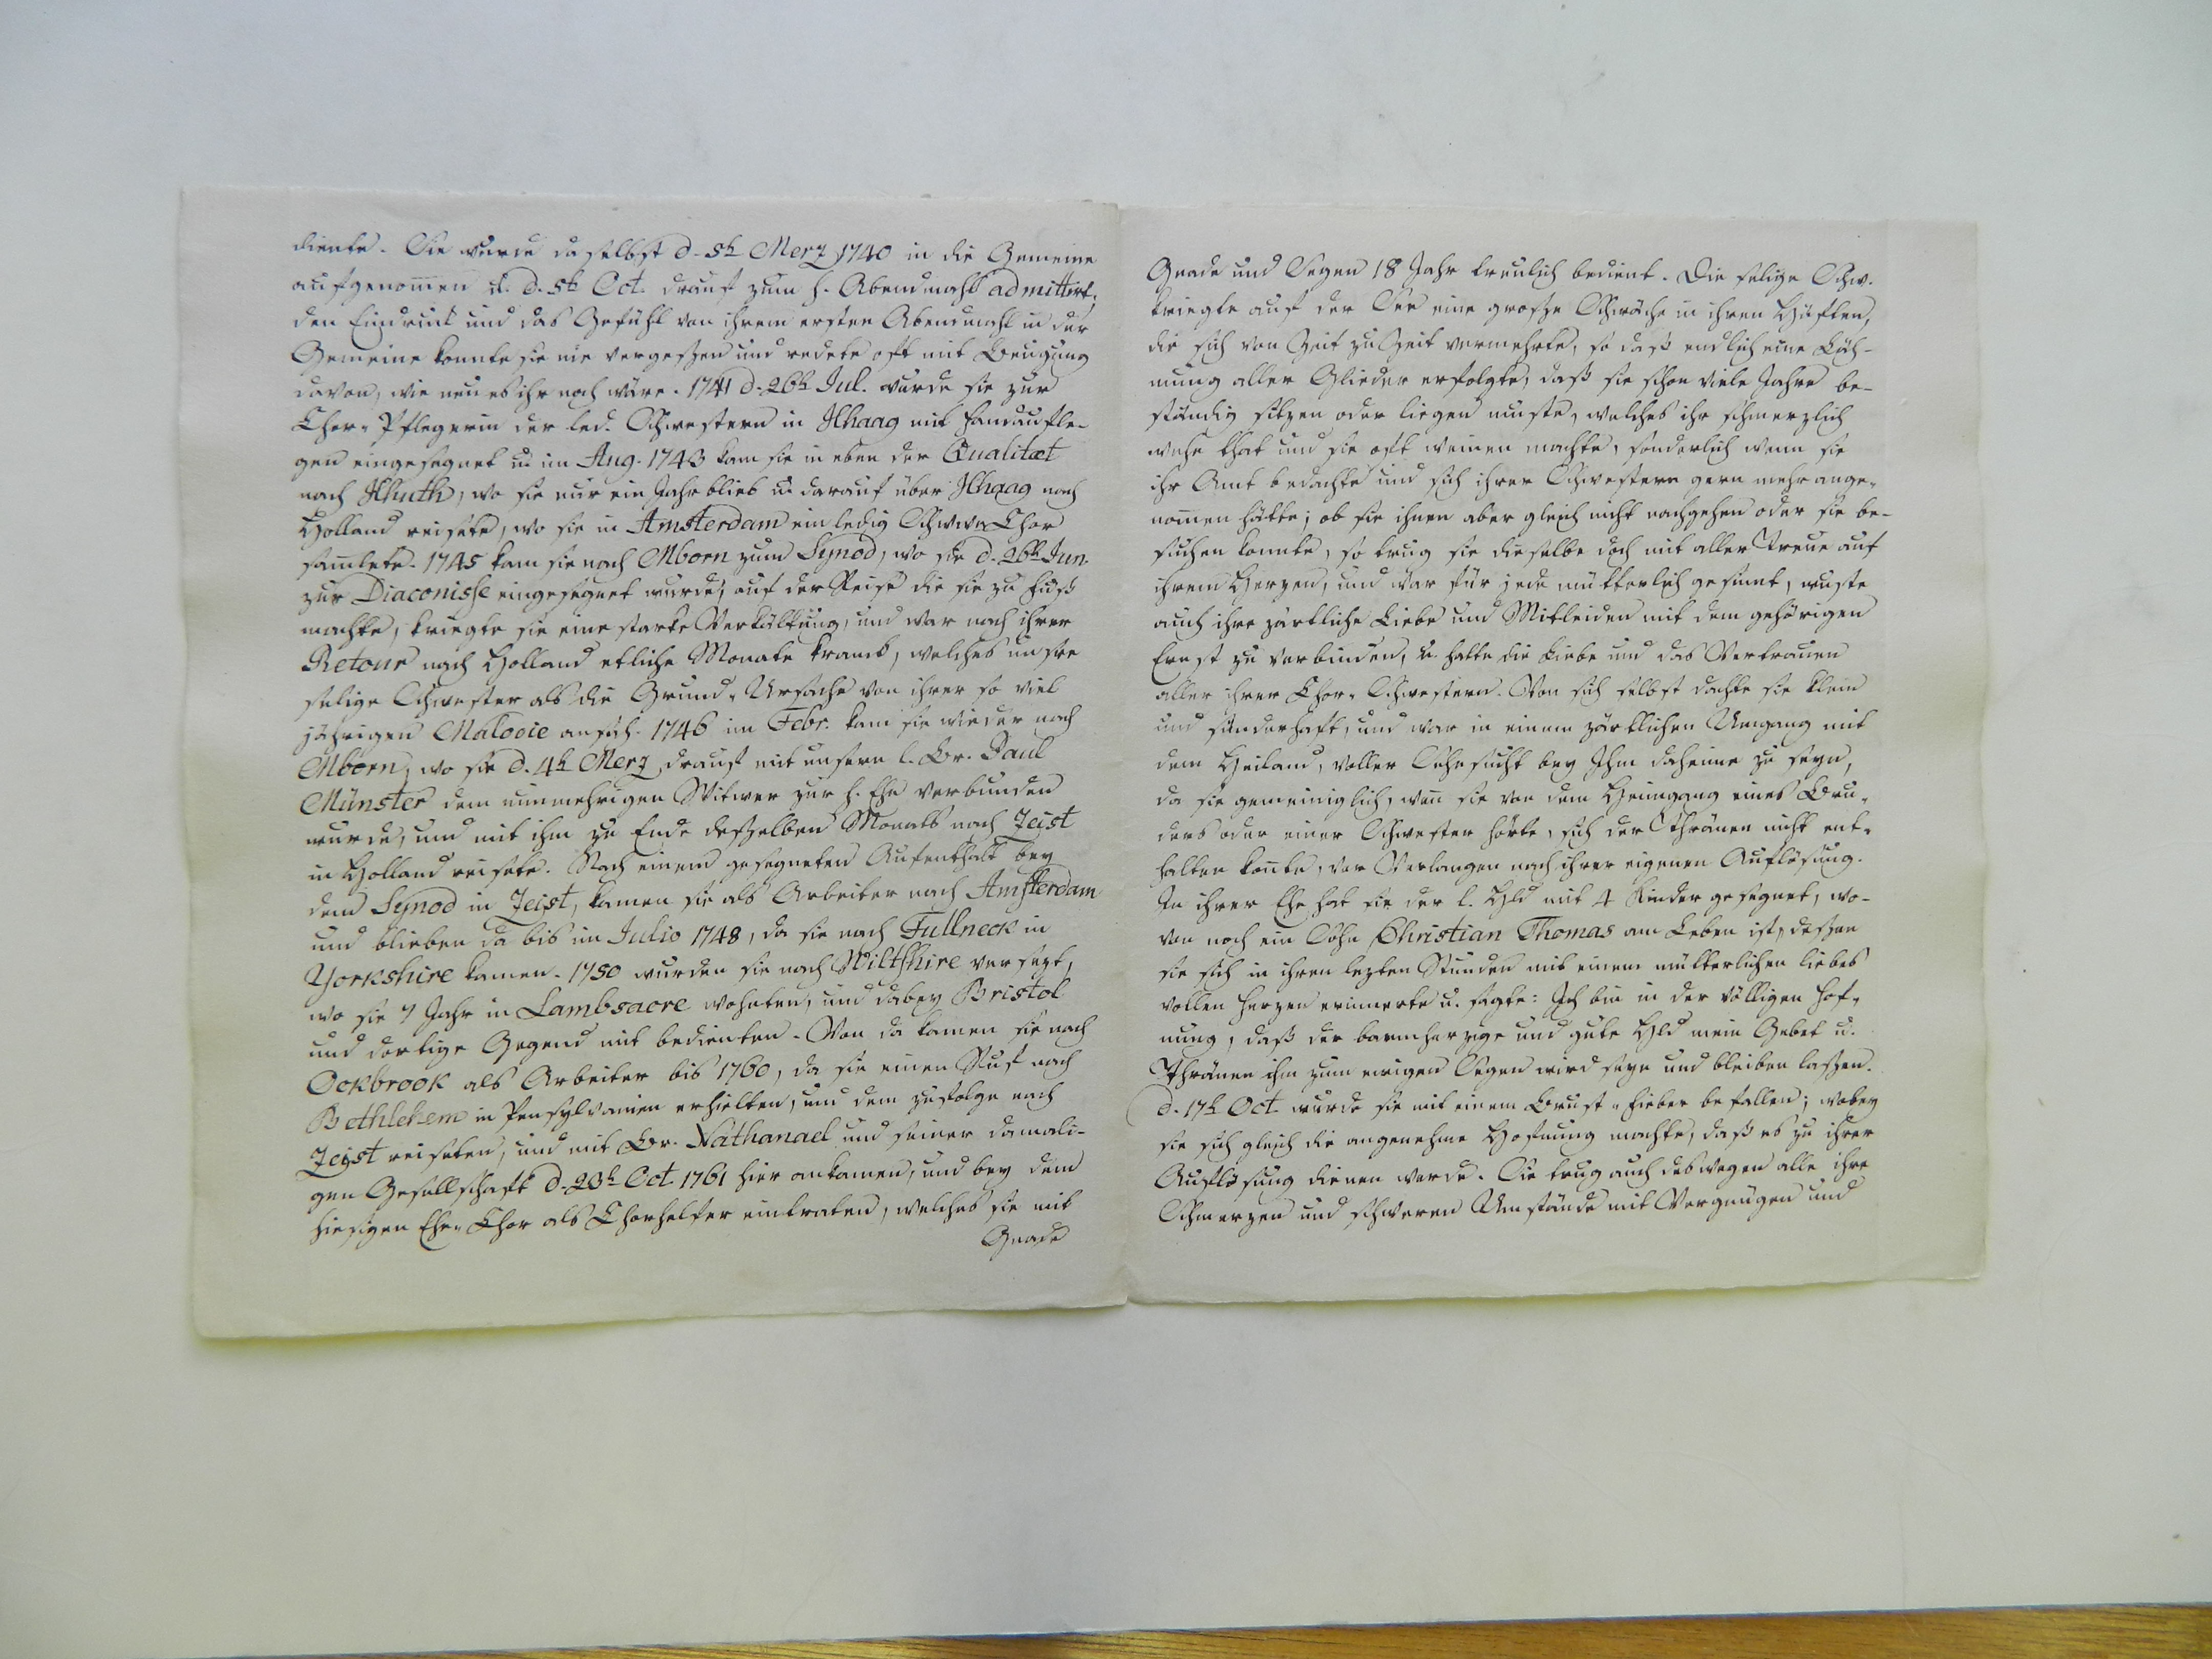 diente. Sie wurde daselbst d. 5t Merz 1740 in die Gemeine
aufgenom̅en u. d. 5t Oct. drauf zum h. Abendmahl admittirt,
den Eindruck und das Gefühl von ihrem ersten Abendmahl in der
Gemeine konnte sie nie vergeßen und redete oft mit Beugung
davon, wie neu es ihr noch wäre. 1741 d. 26t Jul. wurde sie zur
Chor-Pflegerin der led. Schwestern in Hhaag mit Handaufle-
gen eingesegnet u. im Aug. 1743 kam sie in eben der Qualitæt
nach Hhuth, wo sie nur ein Jahr blieb u. darauf über Hhaag nach
Holland reisete, wo sie in Amsterdam ein ledig Schwn Chor
sam̅lete. 1745 kam sie nach Mborn zum Synod, wo sie d. 26t Jun.
zur Diaconisse eingesegnet wurde; auf der Reise die sie zu Fuß
machte, kriegte sie eine starke Verkältung, und war nach ihrer
Retour nach Holland etliche Monate kranck, welches unsre
selige Schwester als die Grund-Ursache von ihrer so viel
jährigen Maladie ansah. 1746 im Febr. kam sie wieder nach
Mborn, wo sie d. 4t Merz drauf mit unserm l. Br. Paul
Münster dem nunmehrigen Witwer zur h. Ehe verbunden
wurde, und mit ihm zu Ende deßelben Monats nach Zeist
in Holland reisete. Nach einem gesegneten Aufenthalt bey
dem Synod in Zeist, kamen sie als Arbeiter nach Amsterdam
und blieben da bis im Julio 1748, da sie nach Fullneck in
Yorkshire kamen. 1750 wurden sie nach Wiltshire versezt,
wo sie 7 Jahr in Lambsacre wohnten, und dabey Bristol
und dortige Gegend mit bedienten. Von da kamen sie nach
Ockbrook als Arbeiter bis 1760, da sie einen Ruf nach
Bethlehem in Pensylvanien erhielten, und dem zufolge nach
Zeist reiseten, und mit Br. Nathanael und seiner damali-
gen Gesellschaft d. 23t Oct. 1761 hier ankamen, und bey dem
hiesigen Ehe-Chor als Chorhelfer eintraten, welches sie mit
Gnade
Gnade und Segen 18 Jahr treulich bedient. Die selige Schw.
kriegte auf der See eine große Schwäche in ihren Hüften,
die sich von Zeit zu Zeit vermehrte, so daß endlich eine Läh-
mung aller Glieder erfolgte, daß sie schon viele Jahre be-
ständig sitzen oder liegen muste, welches ihr schmerzlich
wehe that und sie oft weinen machte, sonderlich wenn sie
ihr Amt bedachte und sich ihrer Schwestern gern mehr ange-
nom̅en hätte; ob sie ihnen aber gleich nicht nachgehen oder sie be-
suchen konnte, so trug sie dieselbe doch mit aller Treue auf
ihrem Herzen, und war für jede mütterlich gesinnt, wuste
auch ihre zärtliche Liebe und Mitleiden mit dem gehörigen
Ernst zu verbinden, u. hatte die Liebe und das Vertrauen
aller ihrer Chor-Schwestern. Von sich selbst dachte sie klein
und sünderhaft, und war in einem zärtlichen Umgang mit
dem Heiland, voller Sehnsucht bey Ihm daheime zu seyn,
da sie gemeiniglich, wen̅ sie von dem Heimgang eines Bru-
ders oder einer Schwester hörte, sich der Thränen nicht ent-
halten kon̅te, vor Verlangen nach ihrer eigenen Auflösung.
In ihrer Ehe hat sie der l. Hld mit 4 Kinder gesegnet, wo-
von noch ein Sohn Christian Thomas am Leben ist, deßen
sie sich in ihren lezten Stunden mit einem mütterlichen liebes
vollen Herzen erinnerte u. sagte: Ich bin in der völligen Hof-
nung, daß der barmherzige und gute Hld mein Gebet u.
Thränen ihm zum ewigen Segen wird seyn und bleiben laßen.
d. 17t Oct. wurde sie mit einem Brust-Fieber befallen; wobey
sie sich gleich die angenehme Hofnung machte, daß es zu ihrer
Auflösung dienen werde. Sie trug auch deswegen alle ihre
Schmerzen und schweren Umstände mit Vergnügen und